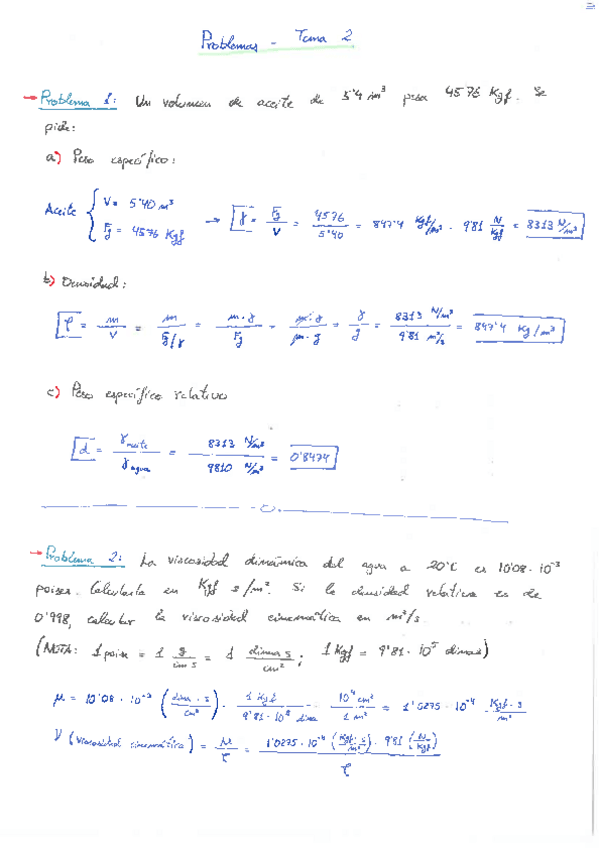 Problemas - Tema 2
→ Problema 1: Un volumen de aceite de 5'4 m³ pesa 4576 Kgf. Se
pide:
a) Peso específico:
Aceite { V = 5'40 m³
Fg = 4576 Kgf
→ γ = Fg / V = 4576 / 5'40 = 847'4 Kgf/m³ · 9'81 N/Kgf = 8313 N/m³
b) Densidad:
ρ = m / V = m / Fg/γ = m·γ / Fg = m·γ / m·g = γ / g = 8313 N/m³ / 9'81 m/s² = 847'4 Kg/m³
c) Peso específico relativo
d = γ aceite / γ agua = 8313 N/m³ / 9810 N/m³ = 0'8474
→ Problema 2: La viscosidad dinámica del agua a 20°C es 10'08 · 10⁻³
poises. Calcularla en Kgf s/m². Si la densidad relativa es de
0'998, calcular la viscosidad cinemática en m²/s
(NOTA: 1 poise = 1 g / cm s = 1 dina s / cm² ; 1 Kgf = 9'81 · 10⁵ dinas)
μ = 10'08 · 10⁻³ (dina · s / cm²) · 1 Kgf / 9'81 · 10⁵ dina · 10⁴ cm² / 1 m² = 1'0275 · 10⁻⁴ Kgf · s / m²
ν (viscosidad cinemática) = μ / ρ = 1'0275 · 10⁻⁴ (Kgf · s / m²) · 9'81 (N / Kgf) / ρ